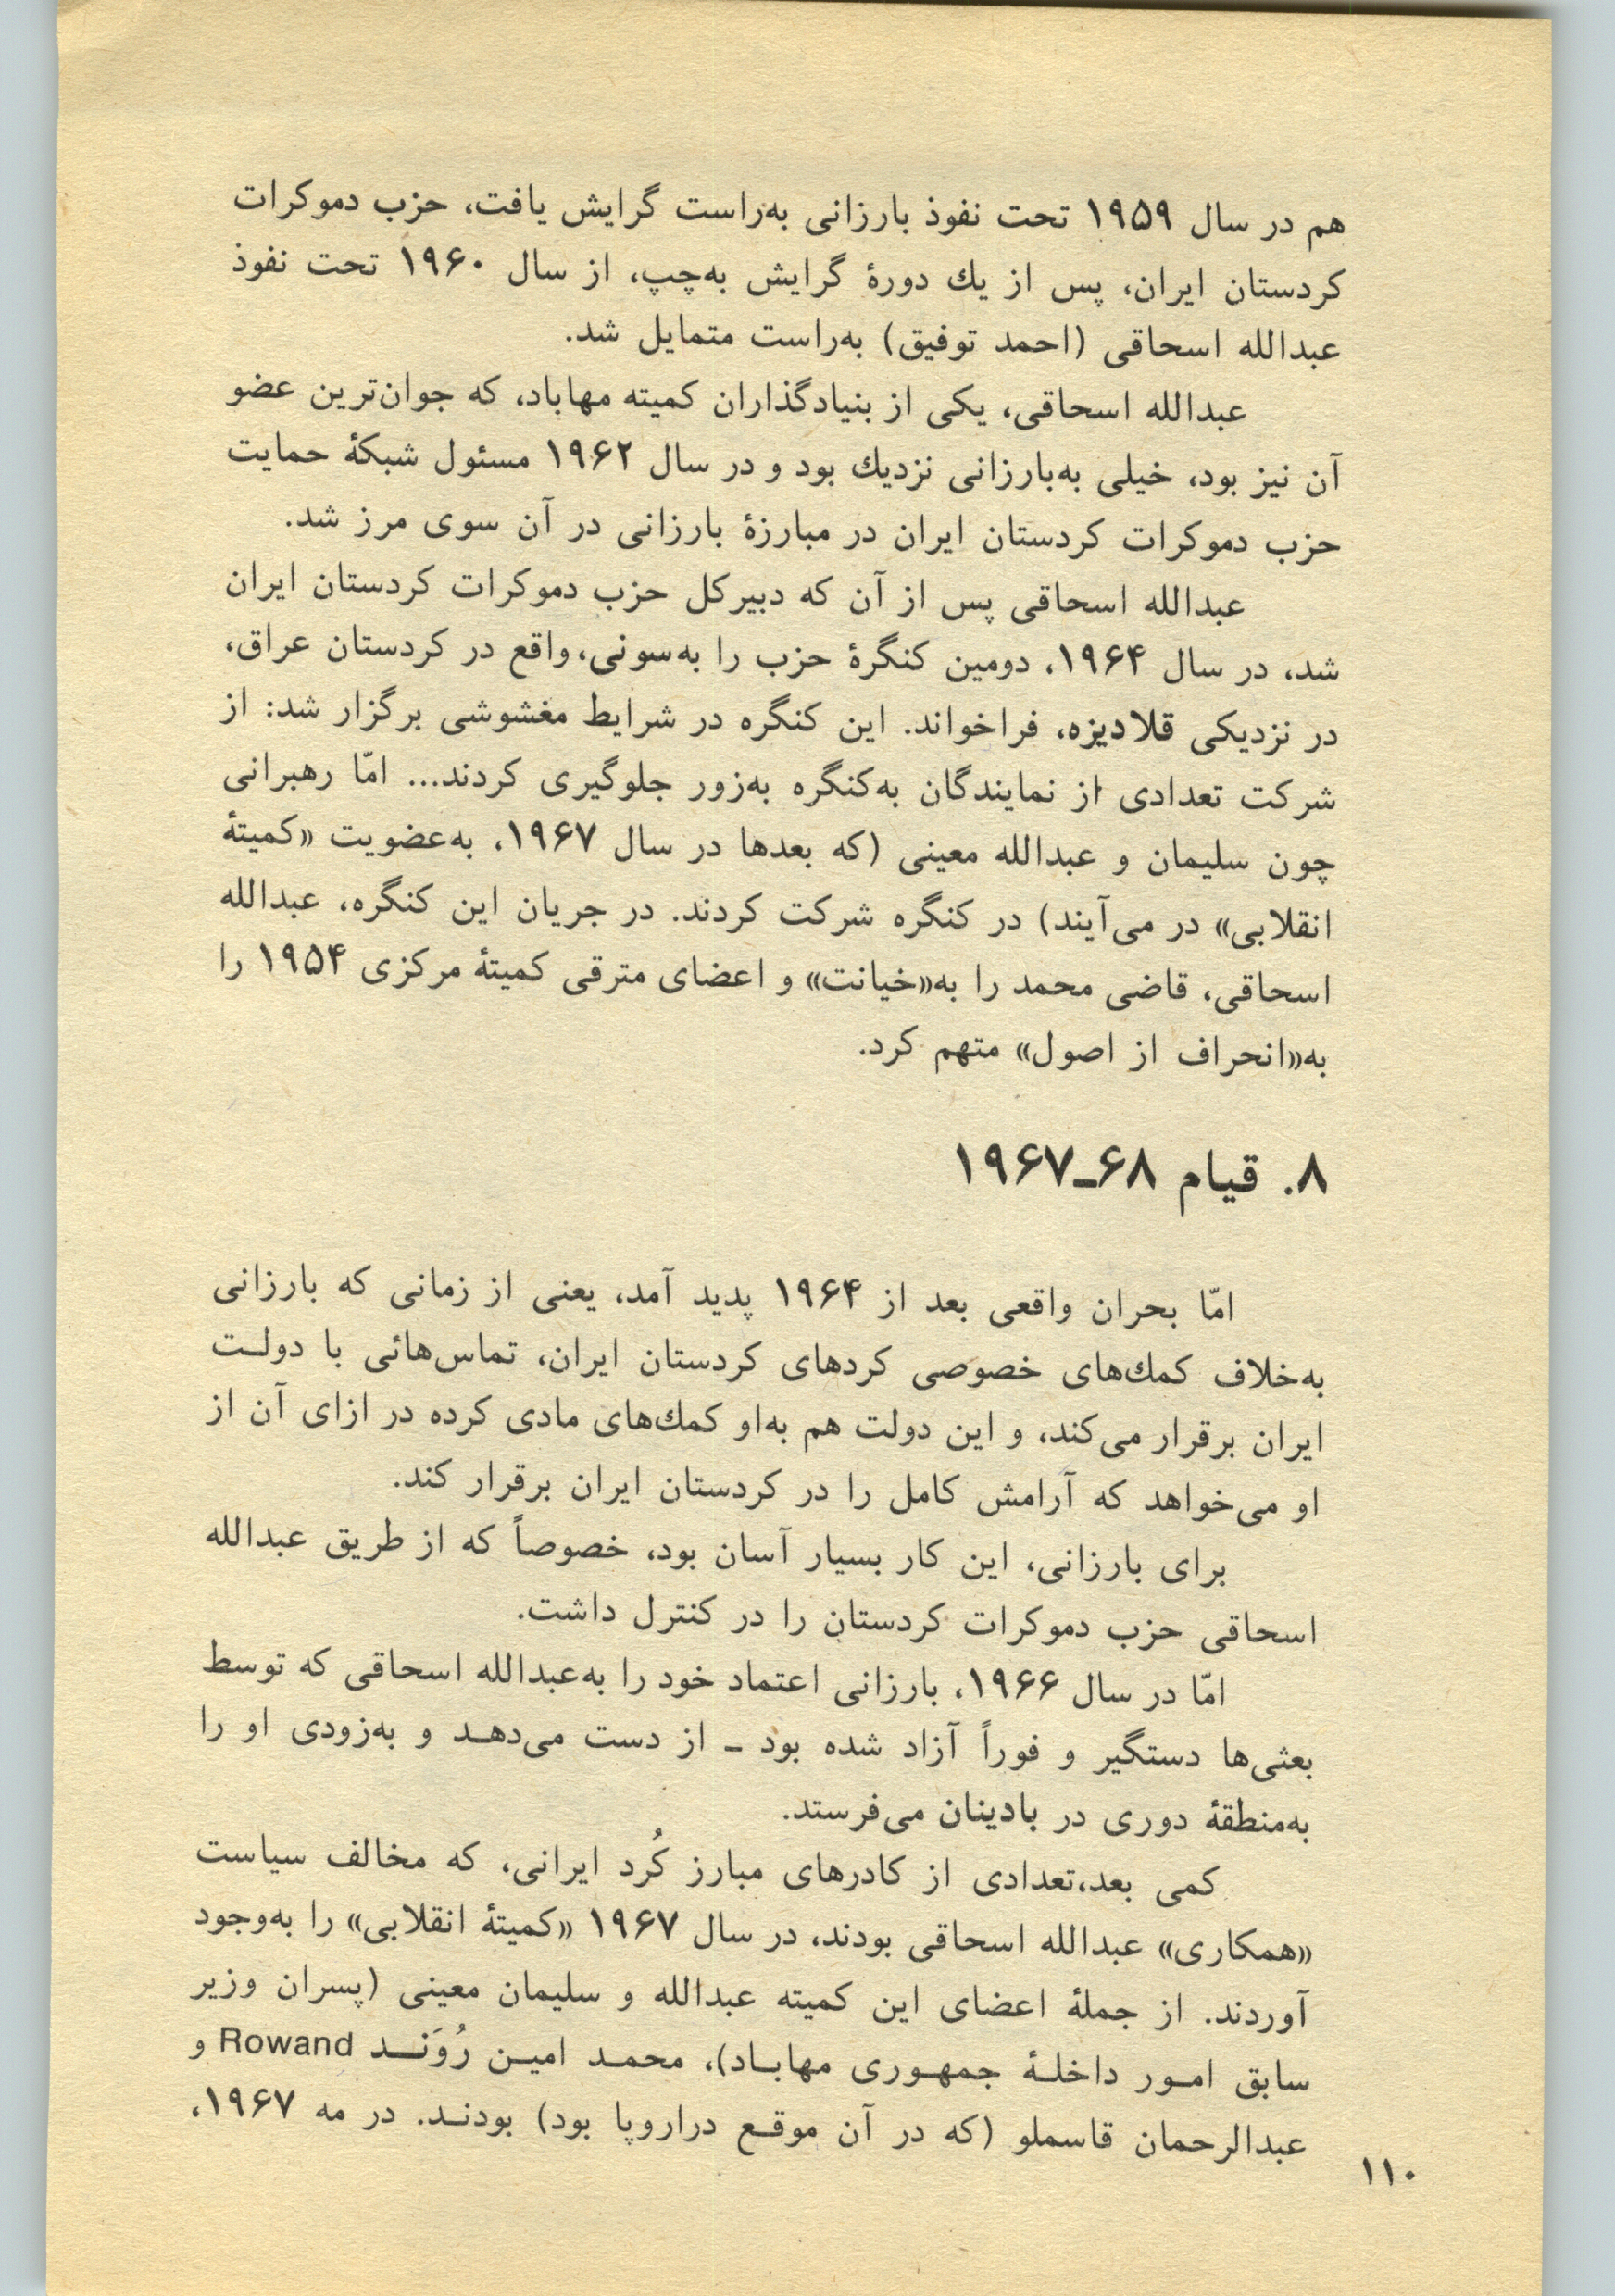 هم در سال ۱۹۵۹ تحت نفوذ بارزانی به‌راست گرایش یافت، حزب دموکرات
کردستان ایران، پس از یك دورهٔ گرایش به‌چپ، از سال ۱۹۶۰ تحت نفوذ
عبدالله اسحاقی (احمد توفیق) به‌راست متمایل شد.
عبدالله اسحاقی، یکی از بنیادگذاران کمیته مهاباد، که جوان‌ترین عضو
آن نیز بود، خیلی به‌بارزانی نزدیك بود و در سال ۱۹۶۲ مسئول شبکهٔ حمایت
حزب دموکرات کردستان ایران در مبارزهٔ بارزانی در آن سوی مرز شد.
عبدالله اسحاقی پس از آن که دبیرکل حزب دموکرات کردستان ایران
شد، در سال ۱۹۶۴، دومین کنگرهٔ حزب را به‌سونی، واقع در کردستان عراق،
در نزدیکی قلادیزه، فراخواند. این کنگره در شرایط مغشوشی برگزار شد: از
شرکت تعدادی از نمایندگان به‌کنگره به‌زور جلوگیری کردند... امّا رهبرانی
چون سلیمان و عبدالله معینی (که بعدها در سال ۱۹۶۷، به‌عضویت «کمیتهٔ
انقلابی» در می‌آیند) در کنگره شرکت کردند. در جریان این کنگره، عبدالله
اسحاقی، قاضی محمد را به«خیانت» و اعضای مترقی کمیتهٔ مرکزی ۱۹۵۴ را
به«انحراف از اصول» متهم کرد.
۸. قیام ۶۸ـ۱۹۶۷
امّا بحران واقعی بعد از ۱۹۶۴ پدید آمد، یعنی از زمانی که بارزانی
به‌خلاف کمك‌های خصوصی کردهای کردستان ایران، تماس‌هائی با دولـت
ایران برقرار می‌کند، و این دولت هم به‌او کمك‌های مادی کرده در ازای آن از
او می‌خواهد که آرامش کامل را در کردستان ایران برقرار کند.
برای بارزانی، این کار بسیار آسان بود، خصوصاً که از طریق عبدالله
اسحاقی حزب دموکرات کردستان را در کنترل داشت.
امّا در سال ۱۹۶۶، بارزانی اعتماد خود را به‌عبدالله اسحاقی که توسط
بعثی‌ها دستگیر و فوراً آزاد شده بود ـ از دست می‌دهـد و به‌زودی او را
به‌منطقهٔ دوری در بادینان می‌فرستد.
کمی بعد،تعدادی از کادرهای مبارز کُرد ایرانی، که مخالف سیاست
«همکاری» عبدالله اسحاقی بودند، در سال ۱۹۶۷ «کمیتهٔ انقلابی» را به‌وجود
آوردند. از جملهٔ اعضای این کمیته عبدالله و سلیمان معینی (پسران وزیر
سابق امـور داخلـهٔ جمهـوری مهابـاد)، محمـد امیـن رُوَنــد Rowand و
عبدالرحمان قاسملو (که در آن موقـع دراروپا بود) بودنـد. در مه ۱۹۶۷،
۱۱۰